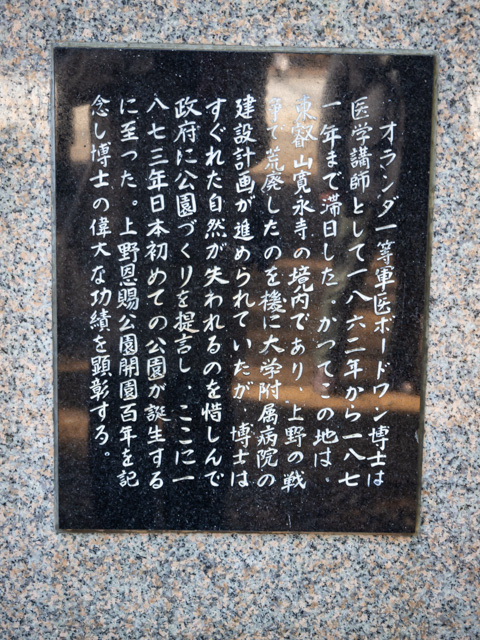 オランダ一等軍医ボードワン博士は
医学講師として一八六二年から一八七
一年まで滞日した。かつてこの地は、
東叡山寛永寺の境内であり、上野の戦
争で荒廃したのを機に大学附属病院の
建設計画が進められていたが、博士は
すぐれた自然が失われるのを惜しんで
政府に公園づくりを提言し、ここに一
八七三年日本初めての公園が誕生する
に至った。上野恩賜公園開園百年を記
念し博士の偉大な功績を顕彰する。